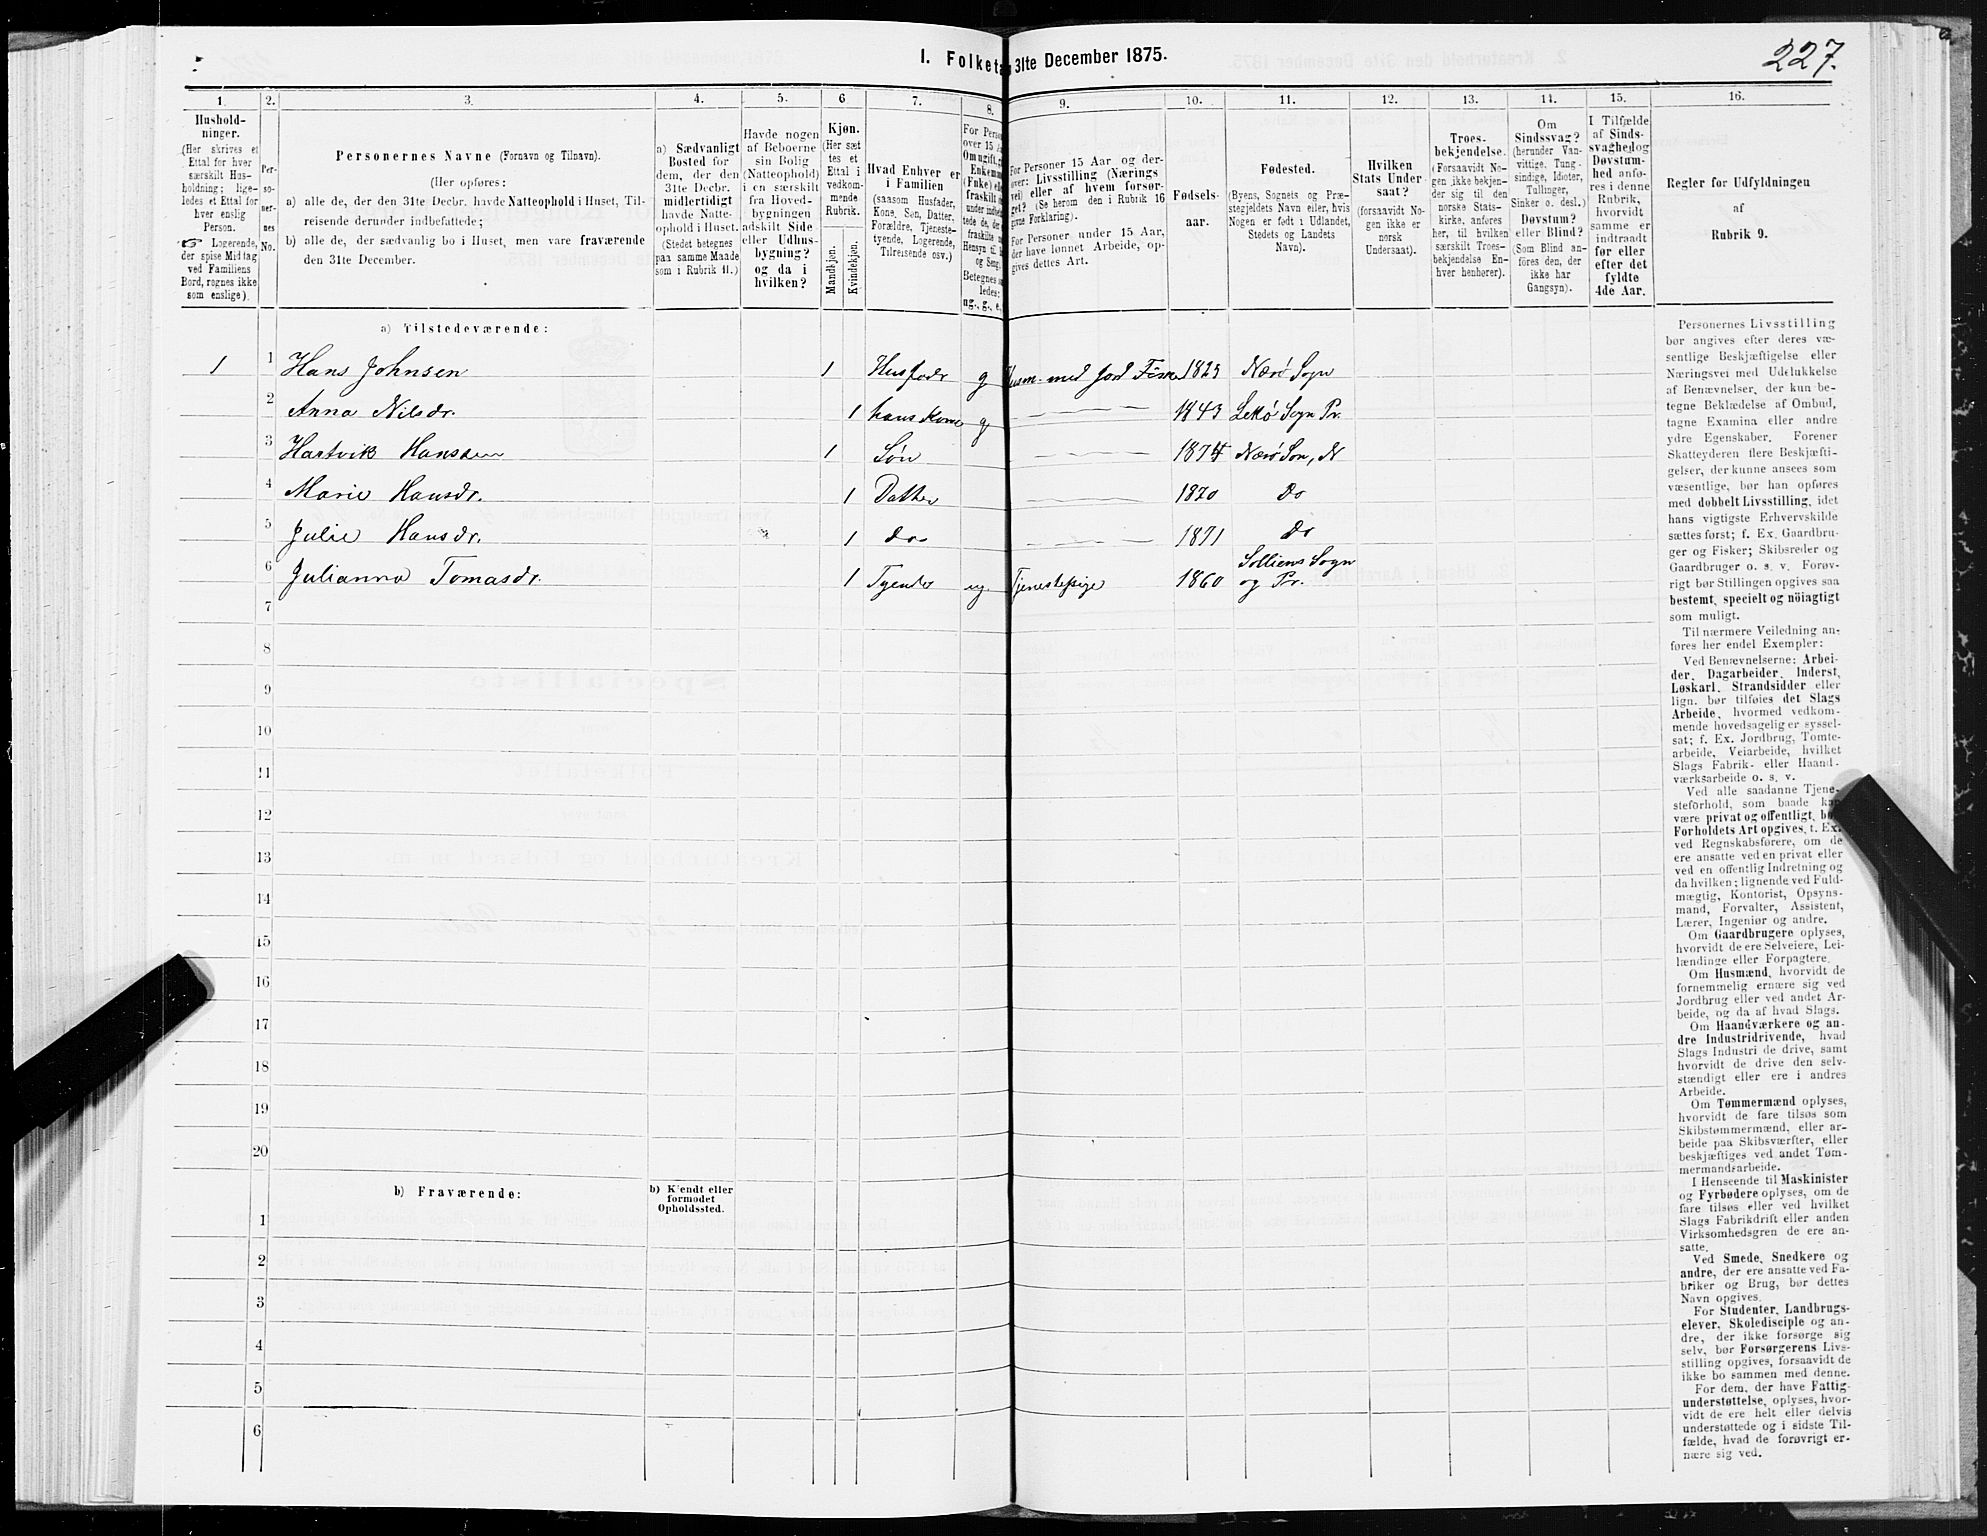 I. Folketa 31te December 1875.
227.
1. 2. 3. 4. 5. 6 7. 8. 9. 10. 11. 12. 13. 14. 15. 16.
Hushold-
ninger.
(Her skrives et
Ettal for hver
særskilt Hus-
holdning; lige-
ledes et Ettal for
hver enslig
Person.
☞ Logerende,
der spise Middag
ved Familiens
Bord, regnes ikke
som enslige).
Per-
so-
ner-
nes
No.
Personernes Navne (Fornavn og Tilnavn).
(Her opføres:
a) alle de, der den 31te Decbr. havde Natteophold i Huset, Til-
reisende derunder indbefattede;
b) alle de, der sædvanlig bo i Huset, men vare fraværende
den 31te December.
a) Sædvanligt
Bosted for
dem, der den
31te Decbr.
midlertidigt
havde Natte-
ophold i Huset.
(Stedet betegnes
paa samme Maade
som i Rubrik 11.)
Havde nogen
af Beboerne
sin Bolig
(Natteophold)
i en særskilt
fra Hoved-
bygningen
adskilt Side
eller Udhus-
bygning?
og da i
hvilken?
Kjøn.
(Her sæt
tes et
Ettal i
vedkom-
mende
Rubrik.
Mandkjøn.
Kvindekjøn.
Hvad Enhver er
i Familien
(saasom Husfader,
Kone, Søn, Datter,
Forældre, Tjeneste-
tyende, Logerende,
Tilreisende osv.)
For Perso
over 15 A
Om ugift, g
Enkema
(Enke) el
fraskilt
under indbe
tede de, der
fraskilte
Hensyn til B
og Seng.
Betegnes s
ledes:
ug., g., e.
For Personer 15 Aar og der-
over: Livsstilling (Nærings
vei) eller af hvem forsør-
get? (Se herom den i Rubrik 16
givne Forklaring).
For Personer under 15 Aar,
der have lønnet Arbeide, op-
gives dettes Art.
Fødsels-
aar.
Fødested.
(Byens, Sognets og Præ-
stegjeldets Navn eller, hvis
Nogen er født i Udlandet,
Stedets og Landets
Navn).
Hvilken
Stats Under
saat?
(forsaavidt No-
gen ikke er
norsk
Undersaat).
Troes-
bekjendelse.
(Forsaavidt No-
gen ikke bekjen-
der sig til den
norske Stats-
kirke, anføres
her, til hvilken
særskilt Troes-
bekjendelse En-
hver henhører).
Om
Sindssvag?
(herunder Van-
vittige, Tung-
sindige, Idioter,
Tullinger,
Sinker o. desl.)
Døvstum?
eller Blind?
(Som Blind an-
føres den, der
ikke har
Gangsyn).
I Tilfælde
af Sinds-
svaghed og
Døvstum-
hed anfø-
res i denne
Rubrik,
hvorvidt
samme er
indtraadt
før eller
efter det
fyldte
4de Aar.
Regler for Udfyldningen
af
Rubrik 9.
a) Tilstedeværende:
1 1 Hans Johnsen 1 Husfadr g Husm. med Jord Fisk 1825 Nærø Sogn
2 Anna Nilsdr. 1 hans Kone g 1843 Lekø Sogn Pr.
3 Hartvik Hanssen 1 Søn 1874 Nærø Son, N
4 Marie Hansdr. 1 Datter 1870 Do
5 Julie Hansdr. 1 do 1871 Do
6 Julianna Tomasdr. 1 Tyende ug. Tjenestepige 1860 Solliens Sogn
og Pr.
7
8
9
10
11
12
13
14
15
16
17
18
19
20
b) Fraværende:
b) Kjendt eller
formodet
Opholdssted.
1
2
3
4
5
6
Personernes Livsstilling
bør angives efter deres væ-
sentlige Beskjæftigelse eller
Næringsvei med Udelukkelse
af Benævnelser, der kun be-
tegne Beklædelse af Ombud,
tagne Examina eller andre
ydre Egenskaber. Forener
Skatteyderen flere Beskjæfti-
gelser, der kunne ansees som
væsentlige, bør han opføres
med dobbelt Livsstilling, idet
hans vigtigste Erhvervskilde
sættes først; f. Ex. Gaardbru-
ger og Fisker; Skibsreder og
Gaardbruger o. s. v. Forøv-
rigt bør Stillingen opgives saa
bestemt, specielt og nöiagtigt
som muligt.
Til nærmere Veiledning an-
føres her endel Exempler:
Ved Benævnelserne: Arbei-
der, Dagarbeider, Inderst,
Løskarl, Strandsidder eller
lign. bør tilføies det Slags
Arbeide, hvormed vedkom-
mende hovedsagelig er syssel-
sat; f. Ex. Jordbrug, Tomte-
arbeide, Veiarbeide, hvilket
Slags Fabrik- eller Haand-
værksarbeide o. s. v.
Ved alle saadanne Tjene-
steforhold, som baade kan
være privat og offentligt, bør
Forholdets Art opgives, t. Ex.
ved Regnskabsførere, om de
ere ansatte ved en privat eller
ved en offentlig Indretning og
da hvilken; lignende ved Fuld-
mægtig, Kontorist, Opsyns-
mand, Forvalter, Assistent,
Lærer, Ingeniør og andre.
Om Gaardbrugere oplyses,
hvorvidt de ere Selveiere, Lei-
lændinge eller Forpagtere.
Om Husmænd, hvorvidt de
fornemmelig ernære sig ved
Jordbrug eller ved andet Ar-
beide, og da af hvad Slags.
Om Haandværkere og an-
dre Industridrivende, hvad
Slags Industri de drive, samt
hvorvidt de drive den selv-
stændigt eller ere i andres
Arbeide.
Om Tømmermænd oplyses,
hvorvidt de fare tilsøs som
Skibstømmermænd, eller ar-
beide paa Skibsværfter, eller
beskjæftiges ved andet Tøm-
mermandsarbeide.
I Henseende til Maskinister
og Fyrbødere oplyses, om de
fare tilsøs eller ved hvilket
Slags Fabrikdrift eller anden
Virksomhedsgren de ere an-
satte.
Ved Smede, Snedkere og
andre, der ere ansatte ved Fa-
briker og Brug, bør dettes
Navn opgives.
For Studenter, Landbrugs-
elever, Skoledisciple og an-
dre, der ikke forsørge sig
selv, bør Forsørgerens Livs-
stilling opgives, forsaavidt de
ikke bo sammen med denne.
For dem, der have Fattig-
understøttelse, oplyses, hvor-
vidt de ere helt eller delvis
understøttede og i sidste Til-
fælde, hvad de forøvrigt er-
nære sig ved.